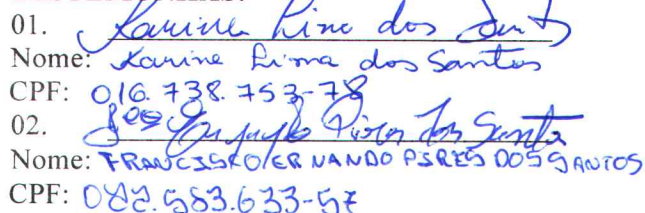 01. Karine Lima dos Santos
Nome: Karine Lima dos Santos
CPF: 016.738.753-78
02. Pires dos Santos
Nome: FRANCISCO FERNANDO PIRES DOS SANTOS
CPF: 082.583.633-57